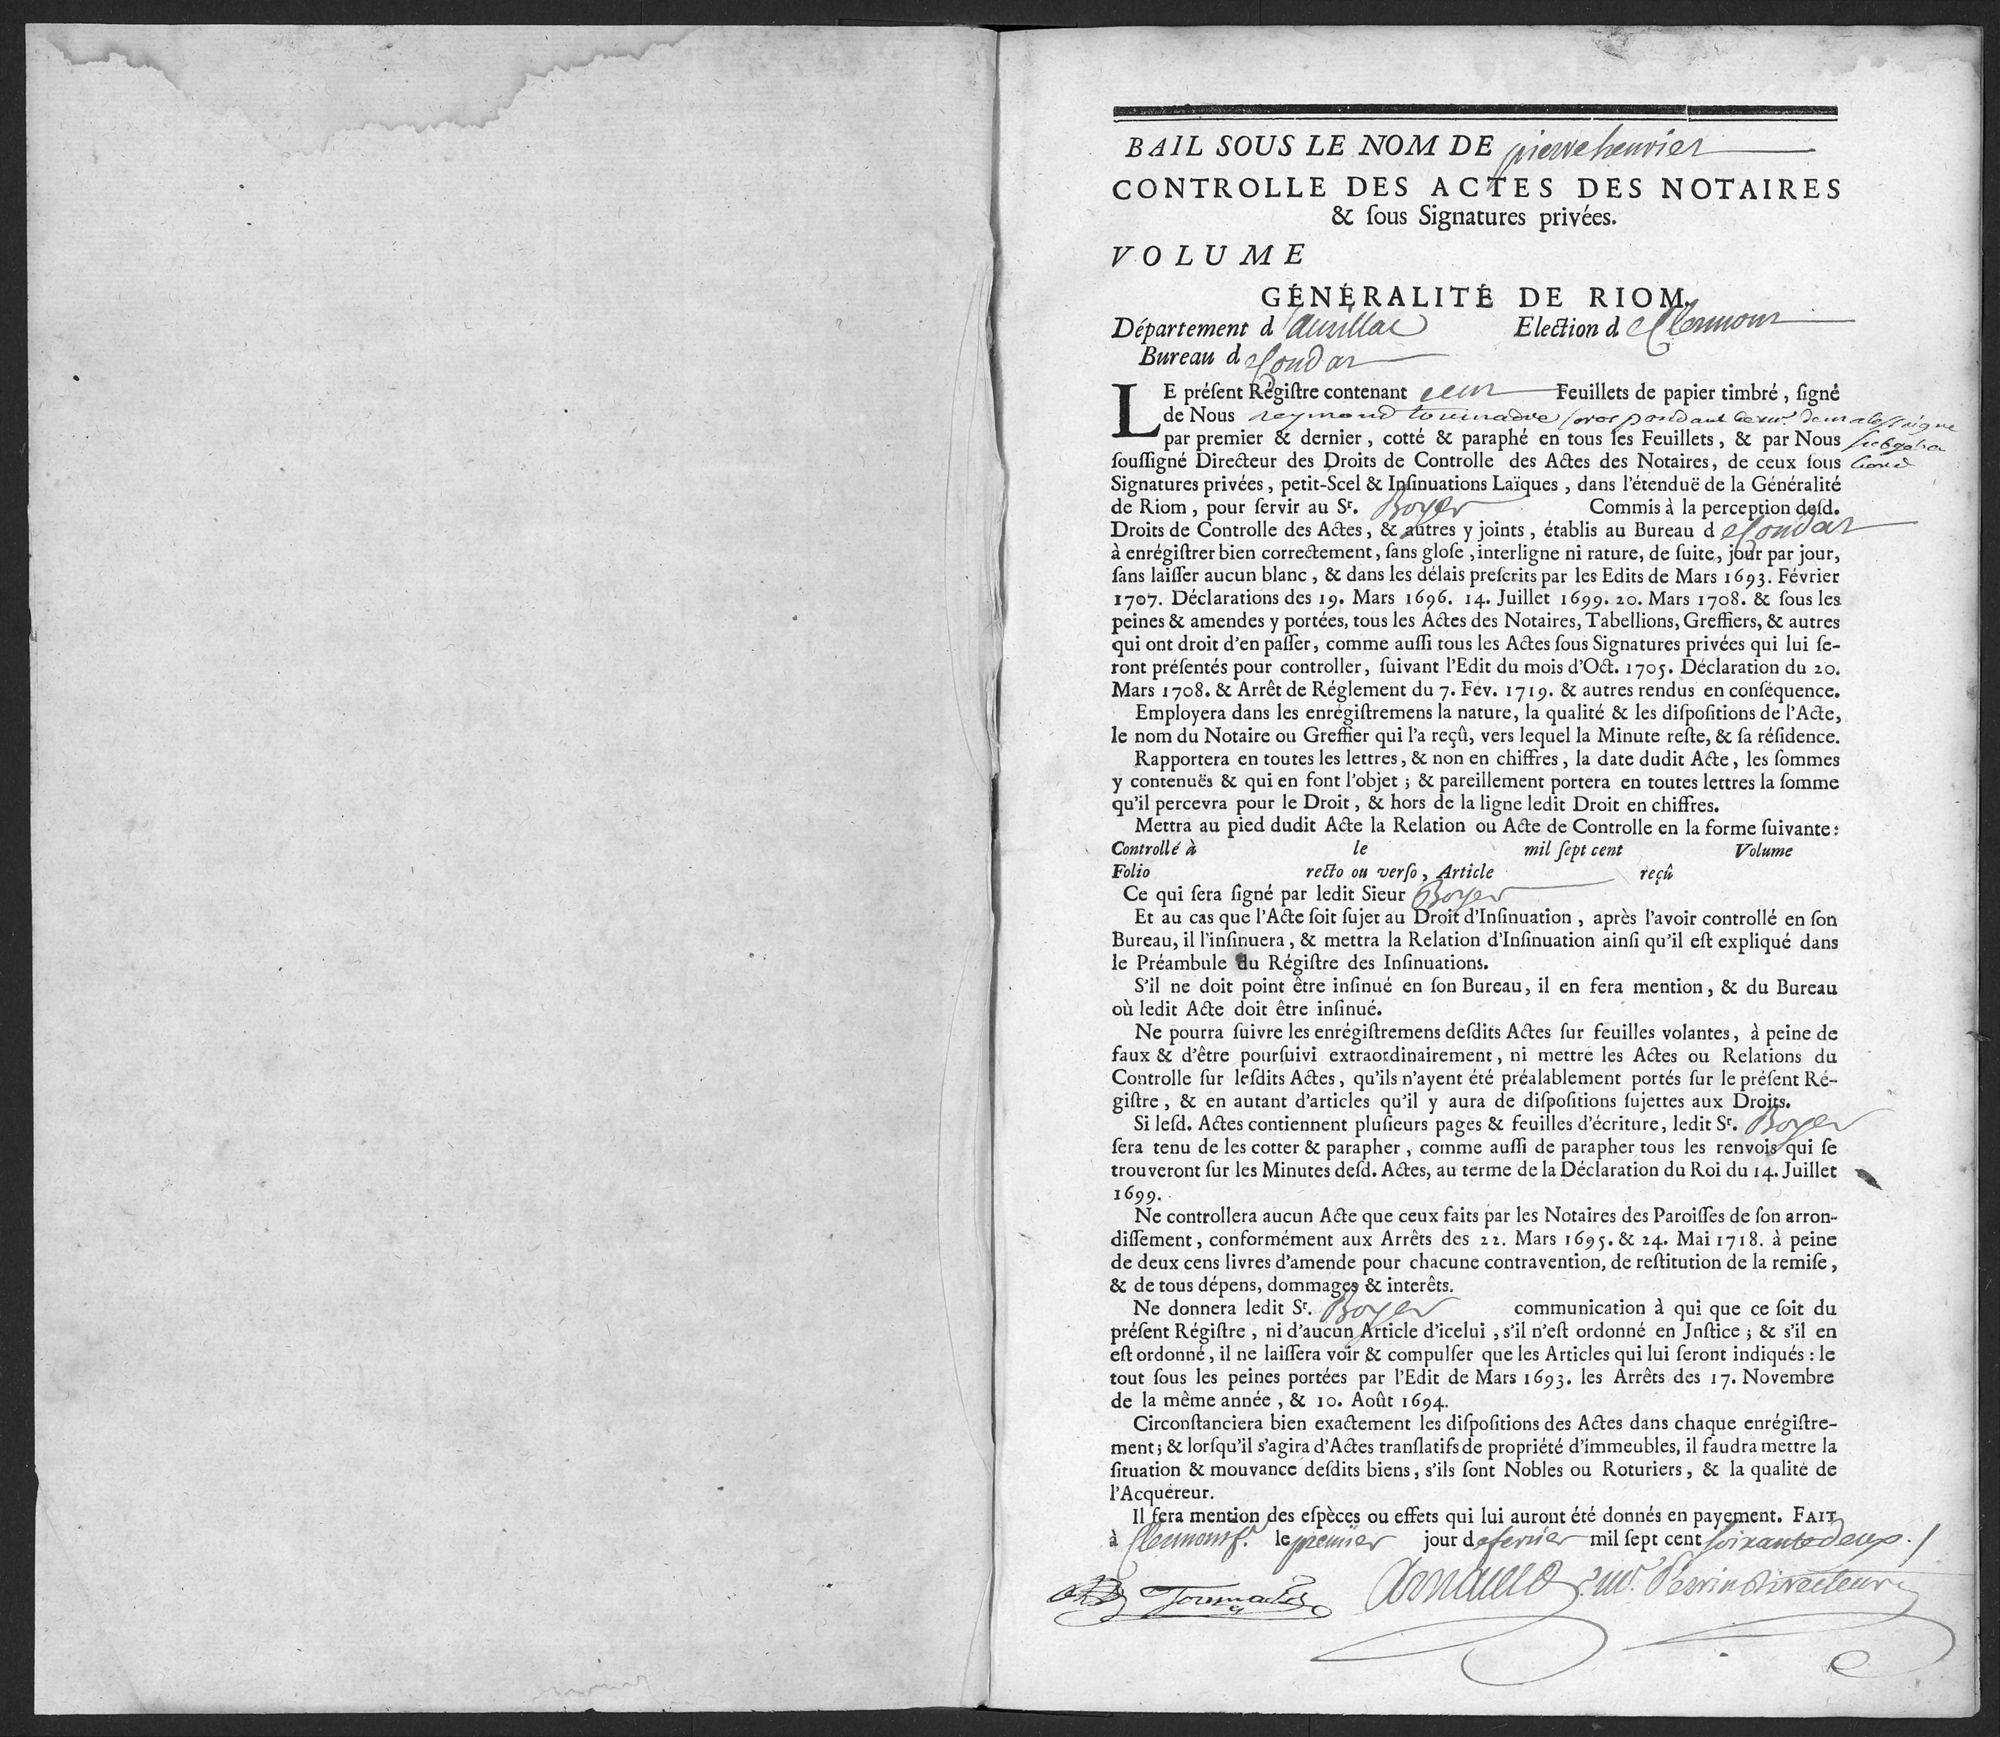 BAIL SOUS LE NOM DE pierre henrier
CONTROLLE DES ACTES DES NOTAIRES
& ſous Signatures privées.
VOLUME
GÉNÉRALITÉ DE RIOM.
Département d'aurillac Election de Clermont
Bureau de Condat
LE préſent Régiſtre contenant cent Feuillets de papier timbré, ſigné
de Nous reymond tournadre
par premier & dernier, cotté & paraphé en tous les Feuillets, & par Nous
ſouſſigné Directeur des Droits de Controlle des Actes des Notaires, de ceux ſous
Signatures privées, petit-Scel & Inſinuations Laïques, dans l'étenduë de la Généralité
de Riom, pour ſervir au Sr. Boyer Commis à la perception deſd.
Droits de Controlle des Actes, & autres y joints, établis au Bureau de Condat
à enrégiſtrer bien correctement, ſans gloſe, interligne ni rature, de ſuite, jour par jour,
ſans laiſſer aucun blanc, & dans les délais preſcrits par les Edits de Mars 1693. Février
1707. Déclarations des 19. Mars 1696. 14. Juillet 1699. 20. Mars 1708. & ſous les
peines & amendes y portées, tous les Actes des Notaires, Tabellions, Greffiers, & autres
qui ont droit d'en paſſer, comme auſſi tous les Actes ſous Signatures privées qui lui ſe-
ront préſentés pour controller, ſuivant l'Edit du mois d'Oct. 1705. Déclaration du 20.
Mars 1708. & Arrêt de Réglement du 7. Fév. 1719. & autres rendus en conſéquence.
Employera dans les enrégiſtremens la nature, la qualité & les diſpoſitions de l'Acte,
le nom du Notaire ou Greffier qui l'a reçû, vers lequel la Minute reſte, & ſa réſidence.
Rapportera en toutes les lettres, & non en chiffres, la date dudit Acte, les ſommes
y contenuës & qui en font l'objet; & pareillement portera en toutes lettres la ſomme
qu'il percevra pour le Droit, & hors de la ligne ledit Droit en chiffres.
Mettra au pied dudit Acte la Relation ou Acte de Controlle en la forme ſuivante:
Controllé à le mil ſept cent Volume
Folio recto ou verſo, Article reçû
Ce qui ſera ſigné par ledit Sieur Boyer
Et au cas que l'Acte ſoit ſujet au Droit d'Inſinuation, après l'avoir controllé en ſon
Bureau, il l'inſinuera, & mettra la Relation d'Inſinuation ainſi qu'il eſt expliqué dans
le Préambule du Régiſtre des Inſinuations.
S'il ne doit point être inſinué en ſon Bureau, il en fera mention, & du Bureau
où ledit Acte doit être inſinué.
Ne pourra ſuivre les enrégiſtremens deſdits Actes ſur feuilles volantes, à peine de
faux & d'être pourſuivi extraordinairement, ni mettre les Actes ou Relations du
Controlle ſur leſdits Actes, qu'ils n'ayent été préalablement portés ſur le préſent Ré-
giſtre, & en autant d'articles qu'il y aura de diſpoſitions ſujettes aux Droits.
Si leſd. Actes contiennent pluſieurs pages & feuilles d'écriture, ledit Sr. Boyer
ſera tenu de les cotter & parapher, comme auſſi de parapher tous les renvois qui ſe
trouveront ſur les Minutes deſd. Actes, au terme de la Déclaration du Roi du 14. Juillet
1699.
Ne controllera aucun Acte que ceux faits par les Notaires des Paroiſſes de ſon arron-
diſſement, conformément aux Arrêts des 22. Mars 1695. & 24. Mai 1718. à peine
de deux cens livres d'amende pour chacune contravention, de reſtitution de la remiſe,
& de tous dépens, dommages & interêts.
Ne donnera ledit Sr. Boyer communication à qui que ce ſoit du
préſent Régiſtre, ni d'aucun Article d'icelui, s'il n'eſt ordonné en Jnſtice; & s'il en
eſt ordonné, il ne laiſſera voir & compulſer que les Articles qui lui ſeront indiqués: le
tout ſous les peines portées par l'Edit de Mars 1693. les Arrêts des 17. Novembre
de la même année, & 10. Août 1694.
Circonſtanciera bien exactement les diſpoſitions des Actes dans chaque enrégiſtre-
ment; & lorſqu'il s'agira d'Actes tranſlatifs de propriété d'immeubles, il faudra mettre la
ſituation & mouvance deſdits biens, s'ils ſont Nobles ou Roturiers, & la qualité de
l'Acquéreur.
Il fera mention des eſpèces ou effets qui lui auront été donnés en payement. FAIT
à Clermont f. le premier jour de fevrier mil ſept cent soixante deux.
Tournadre Arnauld Perrin directeur